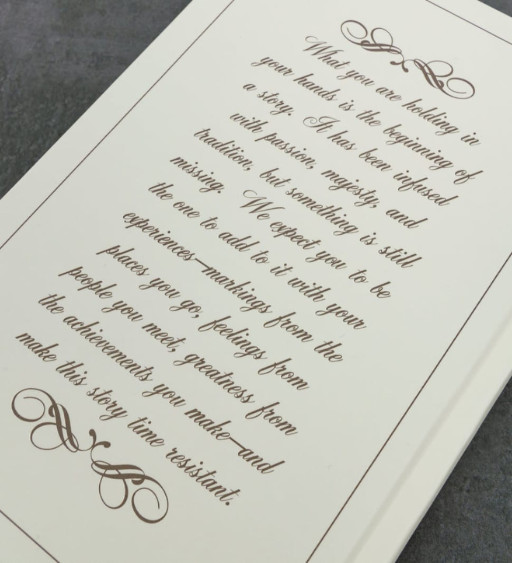 What you are holding in
your hands is the beginning of
a story. It has been infused
with passion, majesty, and
tradition, but something is still
missing. We expect you to be
the one to add to it with your
experiences—markings from the
places you go, feelings from
people you meet, greatness from
the achievements you make—and
make this story time resistant.